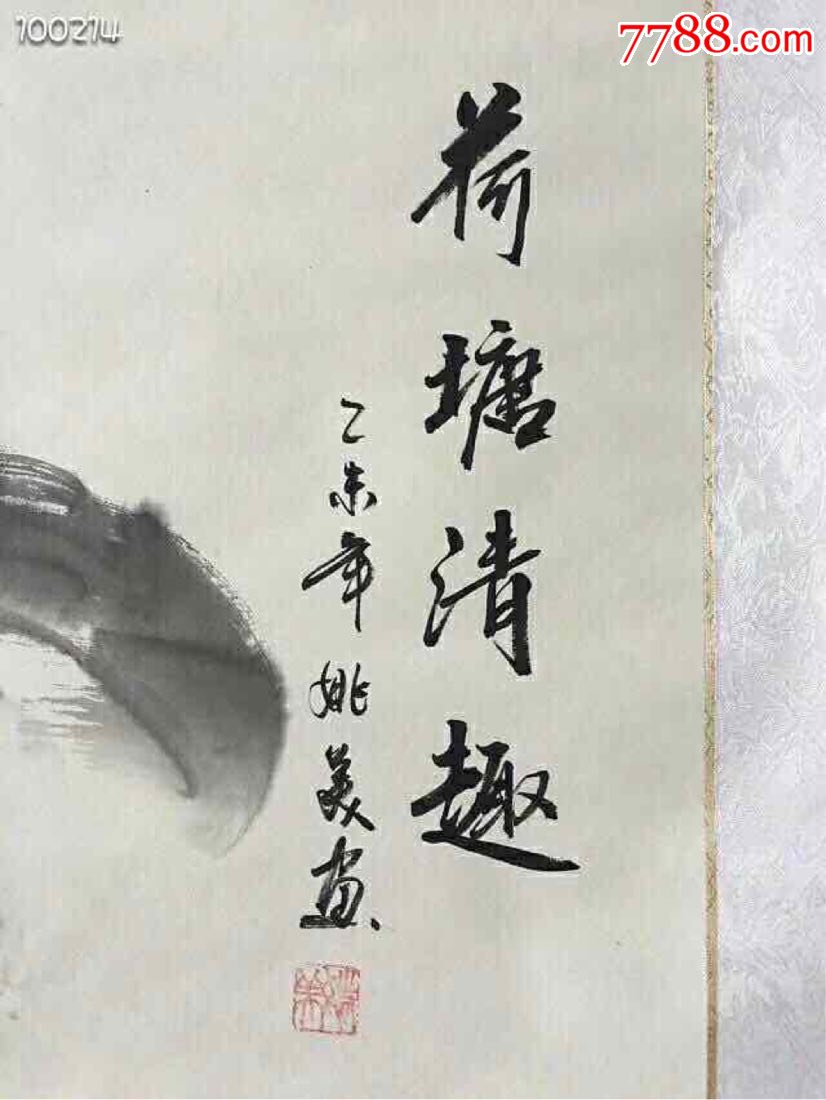 100214
7788.com
荷塘清趣
乙未年姚美画